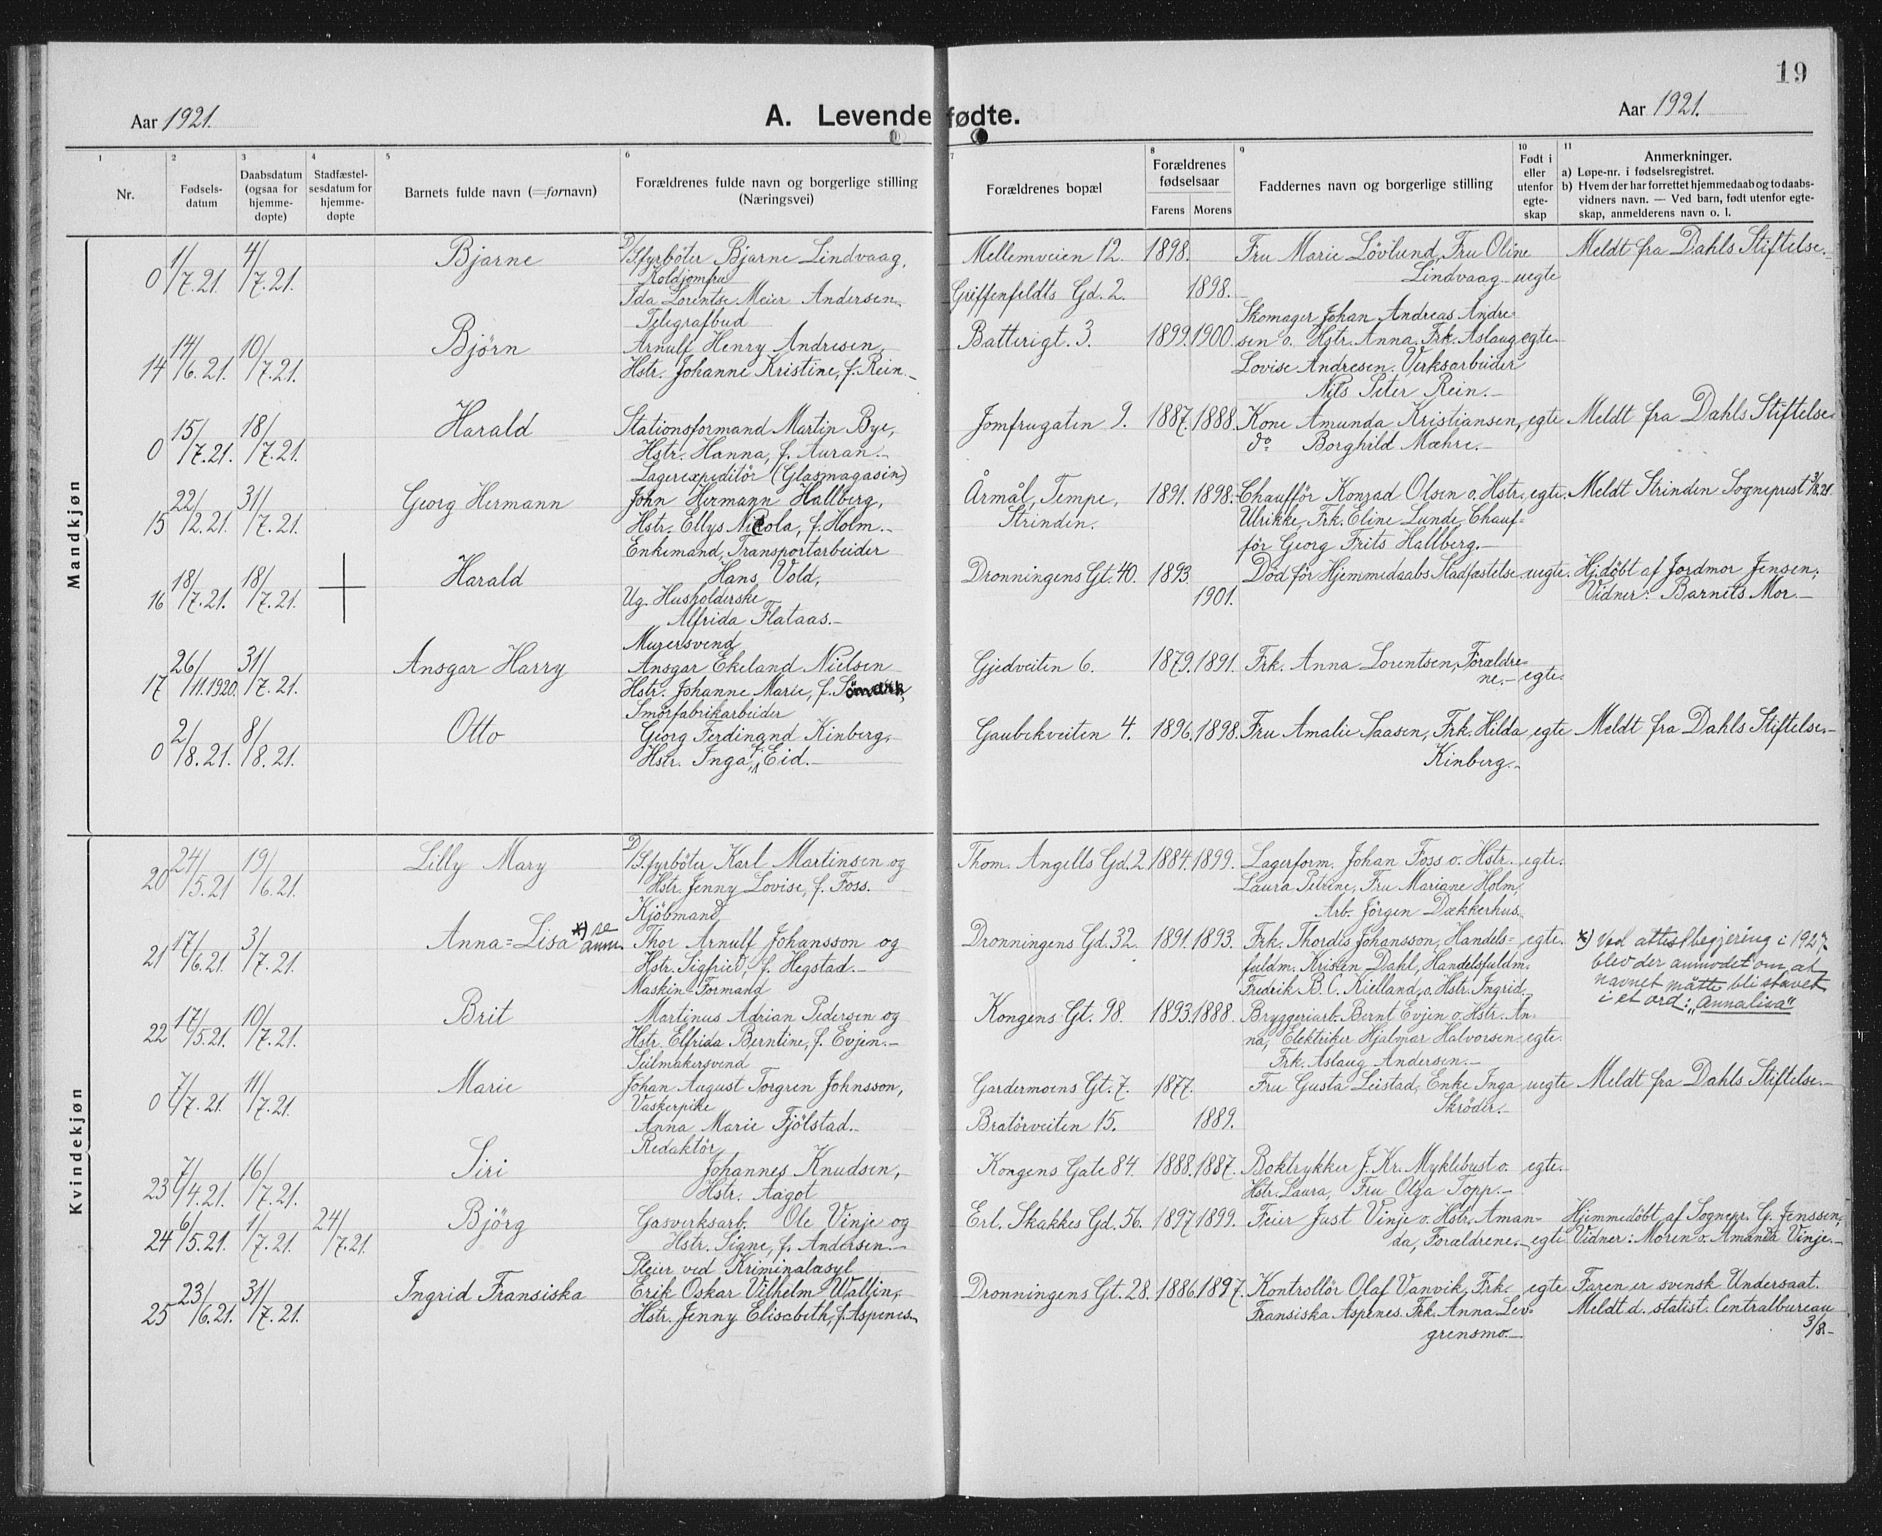 19
Aar 1921.
A. Levende fødte.
Aar 1921.
1 Nr.
2 Fødsels-datum
3 Daabsdatum (ogsaa for hjemme-døpte)
4 Stadfæstel-sesdatum for hjemme-døpte
5 Barnets fulde navn (=fornavn)
6 Forældrenes fulde navn og borgerlige stilling (Næringsvei)
7 Forældrenes bopæl
8 Forældrenes fødselsaar
Farens Morens
9 Faddernes navn og borgerlige stilling
10 Født i eller utenfor egte-skap
11 Anmerkninger.
a) Løpe-nr. i fødselsregistret.
b) Hvem der har forrettet hjemmedaab og to daabs-
vidners navn. — Ved barn, født utenfor egte-
skap, anmelderens navn o. l.
Mandkjøn
0 1/7.21. 4/7.21. Bjarne D/S fyrböter Bjarne Lindvaag, Mellemveien 12. 1898. Fru Marie Lövlund, Fru Oline Meldt fra Dahls Stiftelse.
Koldjomfru Lindvaag uegte
Ida Lorentse Meier Andersen. Griffenfeldts Gd. 2. 1898.
Telegrafbud Skomager Johan Andreas Andre-
14 14/6.21. 10/7.21. Björn Arnulf Henry Andresen, Batterigt. 3. 1899. 1900. sen o. Hstr. Anna. Frk. Aslaug egte
Hstr. Johanne Kristine, f. Rein. Lovise Andresen. Verksarbeider
Nils Peter Rein.
0 15/7.21. 18/7.21. Harald Stationsformand Martin Bye, Jomfrugaten 9. 1887. 1888. Kone Amunda Kristiansen, egte Meldt fra Dahls Stiftelse.
Hstr. Hanna, f. Auran. do Borghild Mæhre.
Lagerexpeditör (Glasmagasin)
15 22/2.21. 31/7.21. Georg Hermann John Hermann Hallberg, Årmål, Tempe, 1891. 1898. Chaufför Konrad Olsen o. Hstr. egte. Meldt Strinden Sogneprest 3/8.21
Hstr. Ellys Nicola, f. Holm. Strinden. Ulrikke, Frk. Eline Lunde, Chauf-
Enkemand, Transportarbeider för Georg Frits Hallberg.
16 18/7.21. 18/7.21. Harald Hans Vold, Dronningens Gt. 40. 1893. Död för Hjemmedaabs Stadfæstelse uegte. Hj.döbt af Jordmor Jensen;
Ug. Husholderske 1901. Vidner: Barnets Mor.
Alfrida Flataas.
Murersvend
17 26/11.1920. 31/7.21. Ansgar Harry Ansgar Ekeland Nielsen Gjedveiten 6. 1879. 1891. Frk. Anna Lorentsen, Forældre-
Hstr. Johanne Marie, f. Sömark. ne. egte.
Smörfabrikarbeider
0 2/8.21. 8/8.21. Otto Georg Ferdinand Kinberg, Gaubekveiten 4. 1896. 1898. Fru Amalie Saasen, Frk. Hilda egte Meldt fra Dahls Stiftelse.
Hstr. Inga, f. Eid. Kinberg.
Kvindekjøn
20 24/5.21 19/6.21. Lilly Mary D/S fyrböter Karl Martinsen og Thom. Angells Gd. 2 1884. 1899. Lagerform. Johan Foss o. Hstr. egte.
Hstr. Jenny Lovise, f. Foss. Laura Petrine, Fru Mariane Holm,
Kjöbmand Arb. Jörgen Dækkerhus.
21 17/6.21. 3/7.21. Anna=Lisa *) se anm. Thor Arnulf Johansson og Dronningens Gd. 32. 1891. 1893. Frk. Thordis Johansson, Handels- egte. *) Ved attestbegjering i 1927
Hstr. Sigfried, f. Hegstad. fuldm. Kristen Dahl, Handelsfuldm. blev der anmodet om at
Maskin-Formand Fredrik B. C. Kielland, o. Hstr. Ingrid. navnet måtte bli stavet
i et ord: "Annalisa"
22 17/5.21. 10/7.21. Brit Martinus Adrian Pedersen og Kongens Gt. 98. 1893. 1888. Bryggeriarb. Bernt Evjen o. Hstr. An-
Hstr. Elfrida Berntine, f. Evjen. na, Elektriker Hjalmar Halvorsen egte.
Seilmakersvend Frk. Aslaug Andersen.
0 7/7.21. 11/7.21. Marie Johan August Torgren Johnsson, Gardermoens Gt. 7. 1877. Fru Gusta Leistad, Enke Inga uegte Meldt fra Dahls Stiftelse.
Vaskerpike Skröder.
Anna Marie Fjölstad. Bratörveiten 15. 1889.
Redaktör
23 7/4.21. 16/7.21. Siri Johannes Knudsen, Kongens Gate 84. 1888. 1887. Boktrykker J. Kr. Myklebust o. egte.
Hstr. Aagot Hstr. Laura, Fru Olga Topp.
24 6/5.21. 1/7.21. 24/7.21. Björg Gasverksarb. Ole Vinje og Erl. Skakkes Gd. 56. 1897 1899. Feier Just Vinje o. Hstr. Aman- Hjemmedöbt af Sognepr. G. Jenssen,
Hstr. Signe, f. Andersen. da, Forældrene. egte Vidner: Moren o. Amanda Vinje.
Pleier ved Kriminalasyl
25 23/6.21. 31/7.21. Ingrid Fransiska Erik Oskar Vilhelm Wallin, Dronningens Gt. 28. 1886 1897. Kontrollör Olaf Vanvik, Frk. egte Faren er svensk Undersaat.
Hstr. Jenny Elisabeth, f. Aspenes. Fransiska Aspenes. Frk. Anna Lev- Meldt d. statist. Centralbureau
grensmo. 3/8.